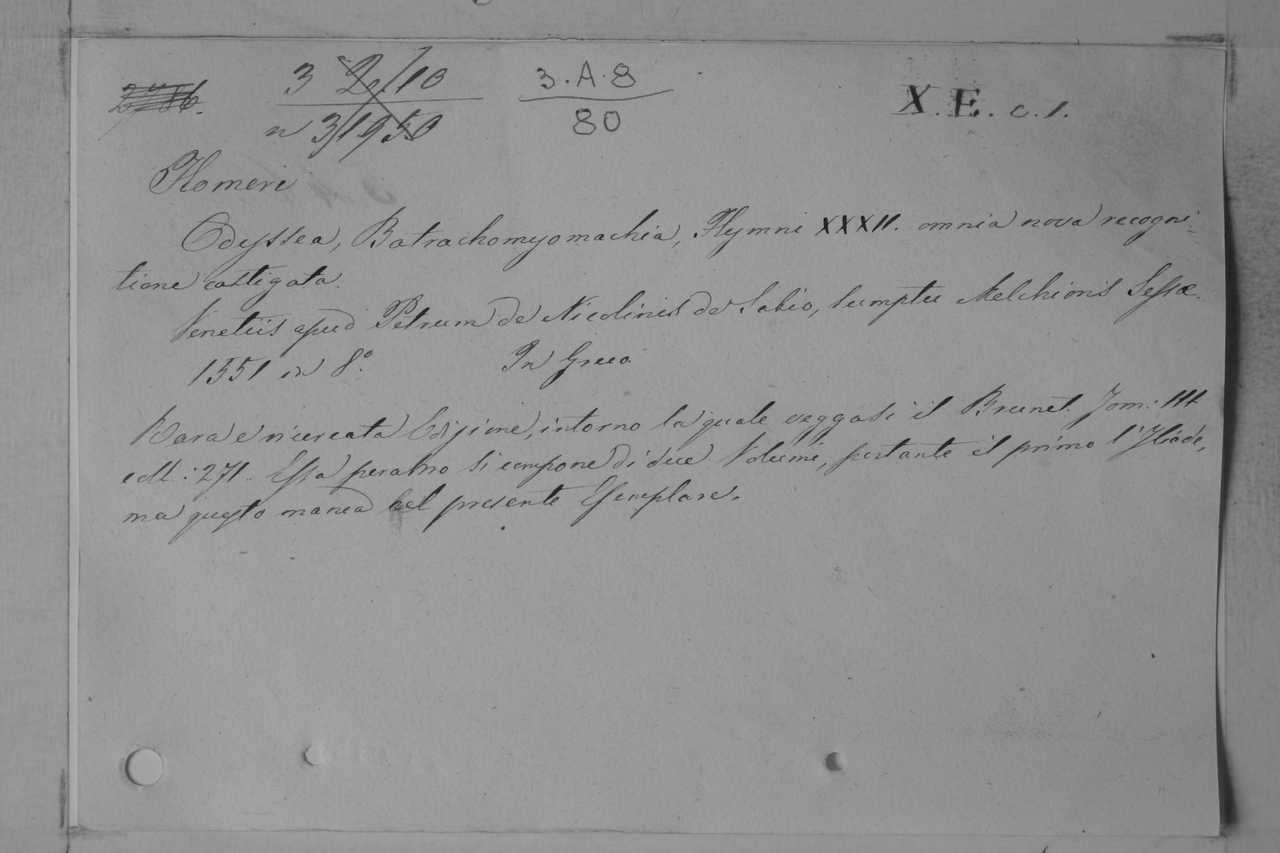 3 2/10 3.A.8 X.E.c.1.
n 3/1950 80
Homeri
Odyssea, Batrachomyomachia, Hymni XXXII. omnia nova recogni-
tione castigata.
Venetiis apud Petrum de Nicolinis de Sabio, sumptu Melchioris Sessæ.
1551 in 8.° In Greco
Rara e ricercata Edizione, intorno la quale veggasi il Brunet. Tom: III
coll: 271. Essa peraltro si compone di due Volumi, portante il primo l'Iliade,
ma questo manca nel presente Esemplare.